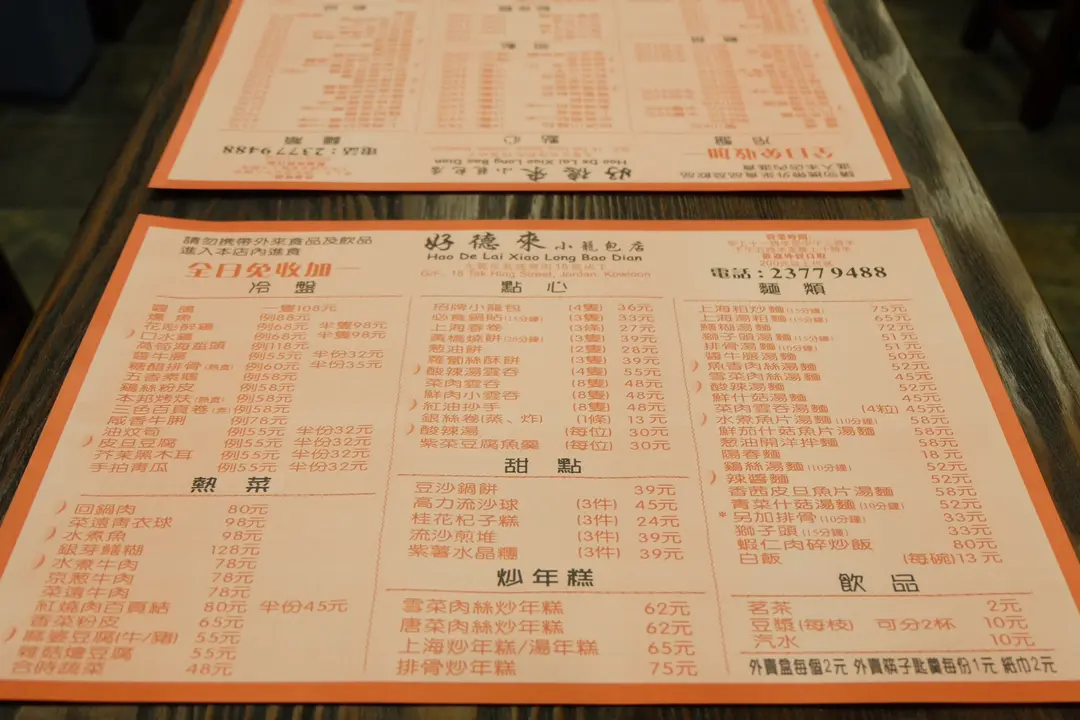 請勿携帶外來食品及飲品
進入本店內進食
全日免收加一
好德來小籠包店
Hao De Lai Xiao Long Bao Dian
G/F., 18 Tak Hing Street, Jordan, Kowloon
電話：23779488
冷盤
一隻108元
例88元
花彫醉雞 例68元 半隻98元
口水雞 例68元 半隻98元
例118元
例55元 半份32元
糖醋排骨(熱食) 例60元 半份35元
五香素鴨 例58元
雞絲粉皮 例58元
本邦烤夫(熱食) 例58元
三色百頁卷 例58元
咸香牛脷 例78元
油炆筍 例55元 半份32元
皮白豆腐 例55元 半份32元
芥茉黑木耳 例55元 半份32元
手拍青瓜 例55元 半份32元
熱菜
回鍋肉 80元
菜遠青衣球 98元
水煮魚 98元
銀芽鱔糊 128元
水煮牛肉 78元
京葱牛肉 78元
菜遠牛肉 78元
紅燒肉百頁結 80元 半份45元
香菜粉皮 65元
麻婆豆腐(牛/豬) 55元
雜菇燴豆腐 55元
合時蔬菜 48元
點心
招牌小籠包 (4隻) 36元
必食鍋貼(15分鐘) (3隻) 33元
上海春卷 (3條) 27元
黃橋燒餅(20分鐘) (3隻) 39元
葱油餅 (2隻) 28元
蘿蔔絲酥餅 (3隻) 39元
酸辣湯雲吞 (4隻) 55元
菜肉雲吞 (8隻) 48元
鮮肉小雲吞 (8隻) 48元
紅油抄手 (8隻) 48元
銀絲卷(蒸、炸) (1條) 13元
酸辣湯 (每位) 30元
紫菜豆腐魚羹 (每位) 30元
甜點
豆沙鍋餅 39元
高力流沙球 (3件) 45元
桂花杞子糕 (3件) 24元
流沙煎堆 (3件) 39元
紫薯水晶糰 (3件) 39元
炒年糕
雪菜肉絲炒年糕 62元
唐菜肉絲炒年糕 62元
上海炒年糕/湯年糕 65元
排骨炒年糕 75元
麵類
上海粗炒麵(15分鐘) 75元
上海湯粗麵(15分鐘) 65元
鱔糊湯麵 72元
獅子頭湯麵(15分鐘) 51元
排骨湯麵(10分鐘) 51元
醬牛腸湯麵 50元
魚香肉絲湯麵 52元
雪菜肉絲湯麵 45元
酸辣湯麵 52元
鮮什菇湯麵 45元
菜肉雲吞湯麵 (4粒) 45元
水煮魚片湯麵(10分鐘) 58元
鮮茄什菇魚片湯麵 58元
葱油開洋拌麵 58元
陽春麵 18元
雞絲湯麵(10分鐘) 52元
辣醬麵 52元
香茜皮旦魚片湯麵 58元
青菜什菇湯麵(10分鐘) 52元
*另加排骨(10分鐘) 33元
獅子頭(15分鐘) 33元
蝦仁肉碎炒飯 80元
白飯 (每碗)13元
飲品
茗茶 2元
豆漿(每枝) 可分2杯 10元
汽水 10元
外賣盒每個2元 外賣筷子匙羹每份1元 紙巾2元